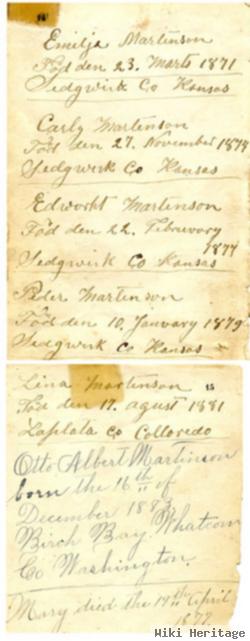 Emilja Martinson
Föd den 23. Marts 1871
Sedgwick Co Kansas
Carly Martinson
Föd den 27. November
Sedgwick Co Kansas
Edworkt Martenson
Föd den 22. Februvory
1877
Sedgwick Co Kansas
Peder Martenson
Föd den 10. January 1879
Sedgwick Co Kansas
15
Lina Martenson
Föd den 17. agust 1881
Laplata Co Colloredo
Otto Albert Martinson
born the 16th of
December 1883
Birch Bay. Whatcom
Co Washington.
Mary died the 14th April
1877
Wiki Heritage